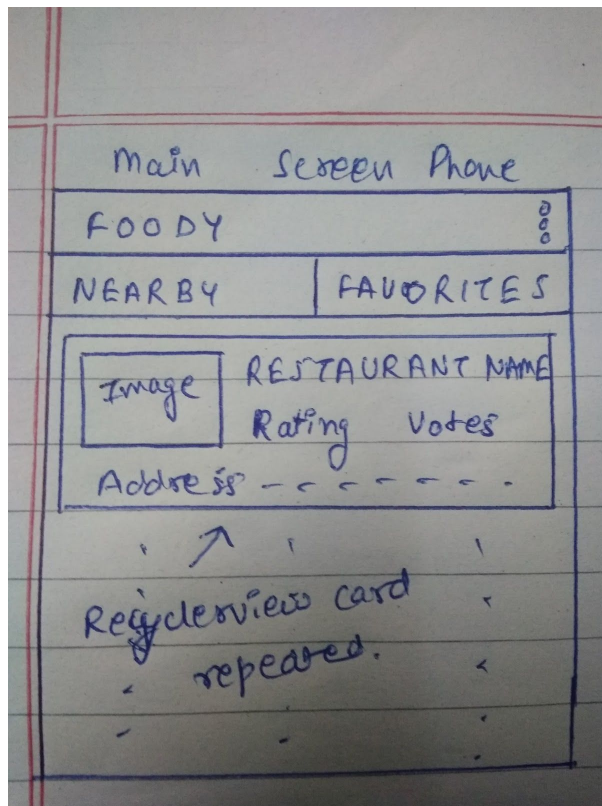 Main Screen Phone
FOODY
NEARBY FAVORITES
Image RESTAURANT NAME
Rating Votes
Address - - - - - - -
Recyclerview card
repeated.